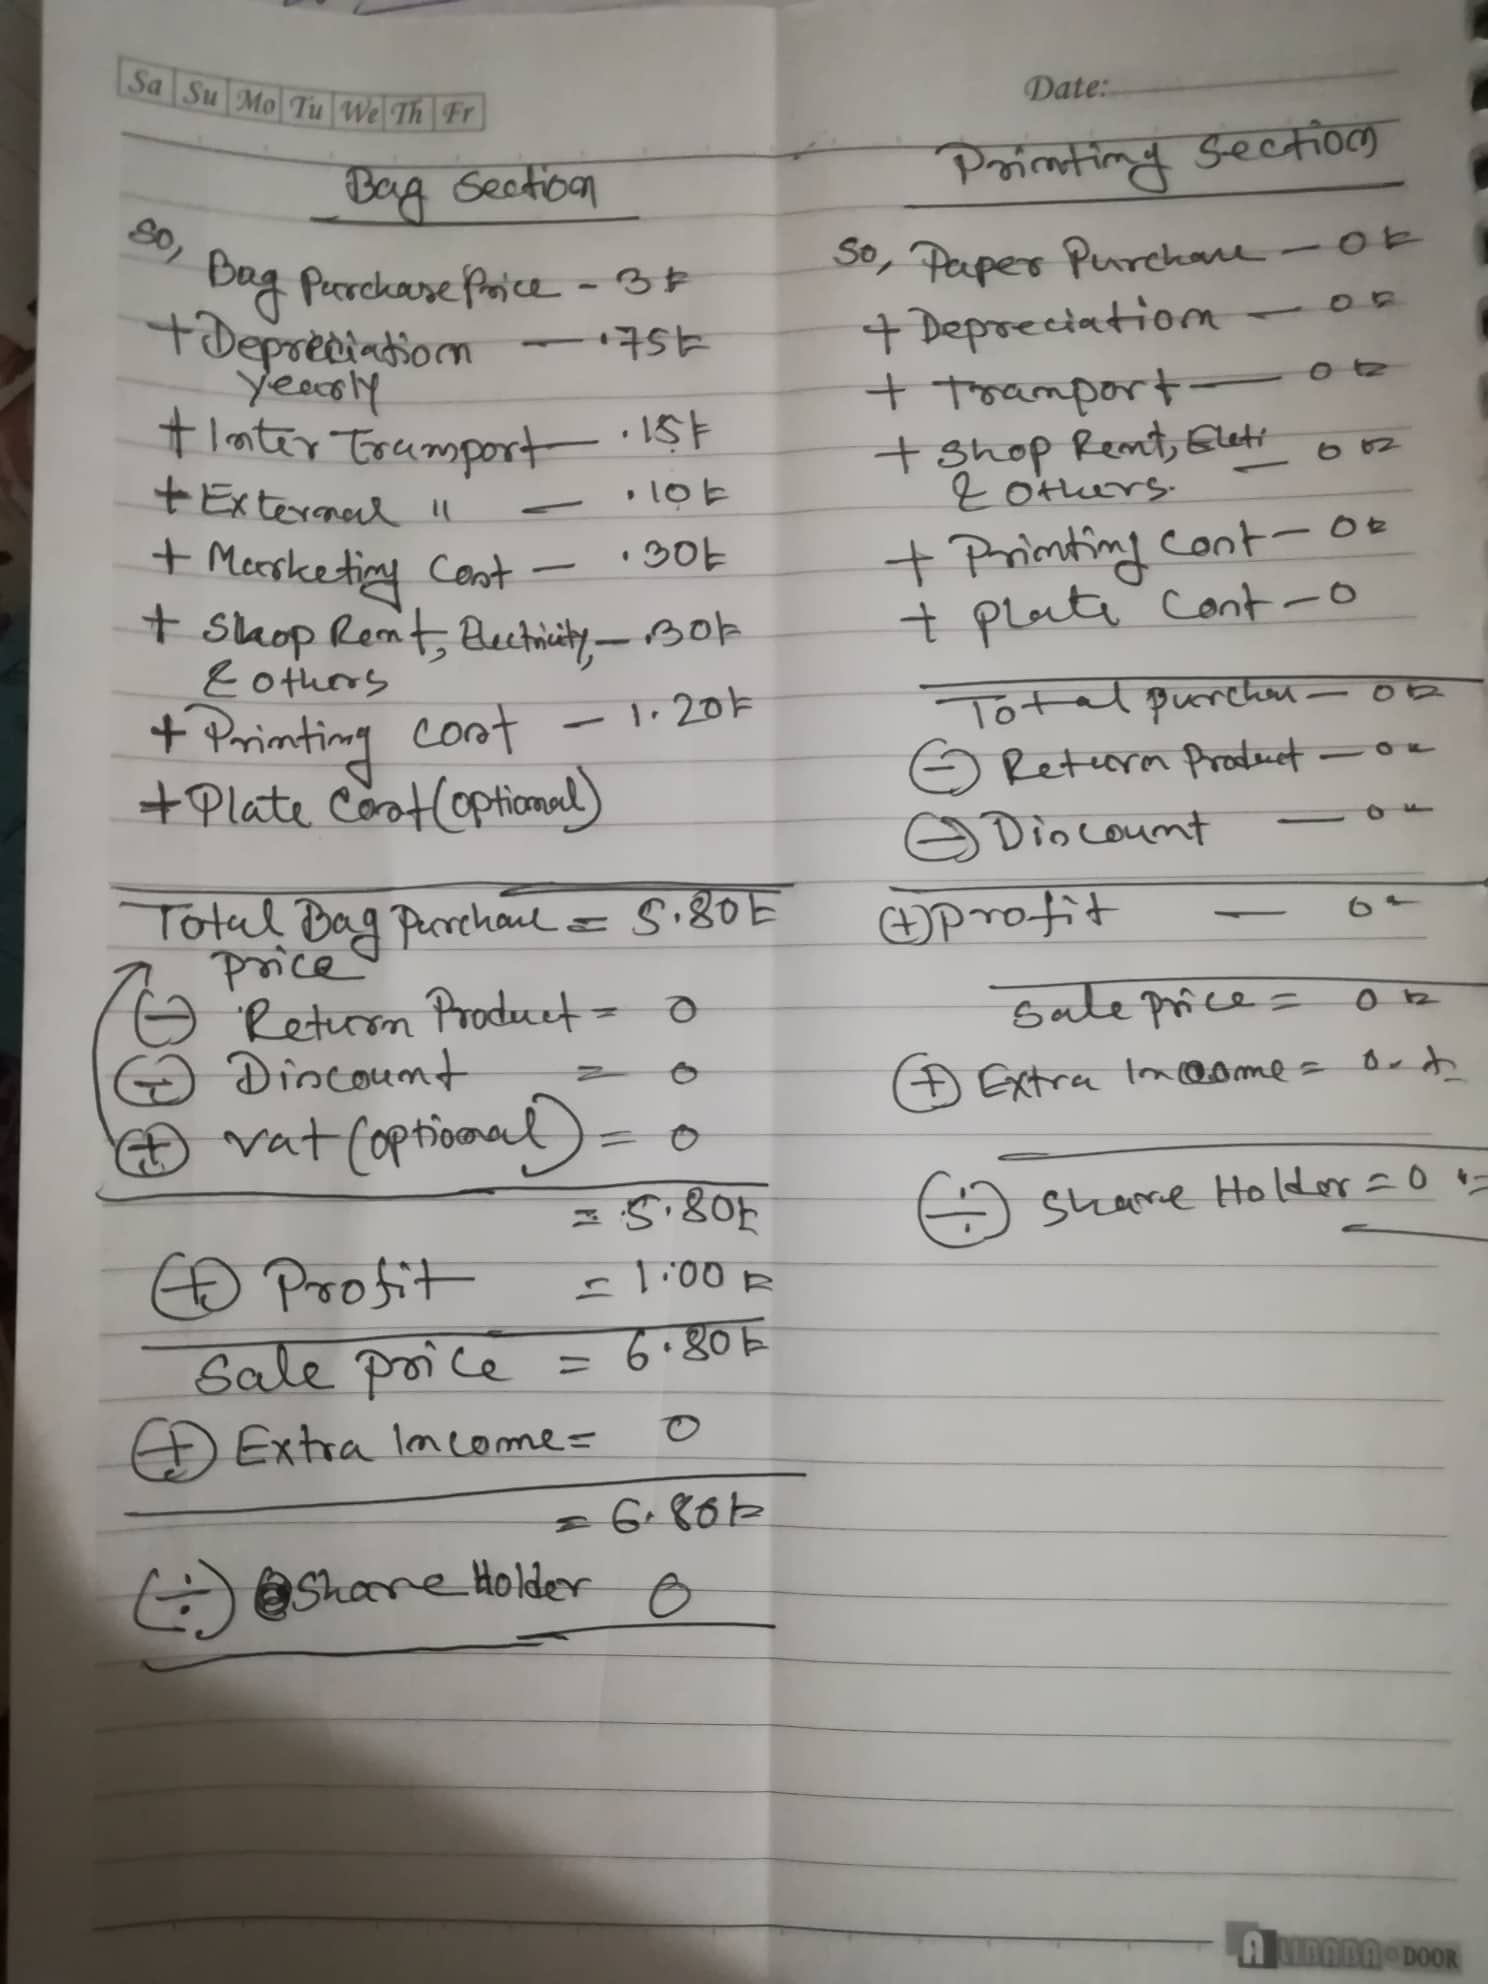 Sa Su Mo Tu We Th Fr
Date:
Bag Section
So,
Bag Purchase Price - 3৳
+ Depreciation — .75৳
yearly
+ Inter Transport — .15৳
+ External " — .10৳
+ Marketing Cost — .30৳
+ Shop Rent, Electricity, — .30৳
& others
+ Printing cost — 1.20৳
+ Plate Cost (optional)
Total Bag Purchase = 5.80৳
Price
(-) Return Product = 0
(-) Discount = 0
(+) vat (optional) = 0
= 5.80৳
(+) Profit = 1.00৳
Sale price = 6.80৳
(+) Extra Income = 0
= 6.80৳
(÷) Share Holder 0
Printing Section
So, Paper Purchase — 0৳
+ Depreciation — 0৳
+ Transport — 0৳
+ Shop Rent, — 0৳
& others.
+ Printing Cost — 0৳
+ Plate Cost — 0
Total purchase — 0৳
(-) Return Product — 0৳
(-) Discount — 0৳
(+) Profit — 0৳
Sale price = 0৳
(+) Extra Income = 0
(÷) Share Holder = 0
ALIBABA DOOR